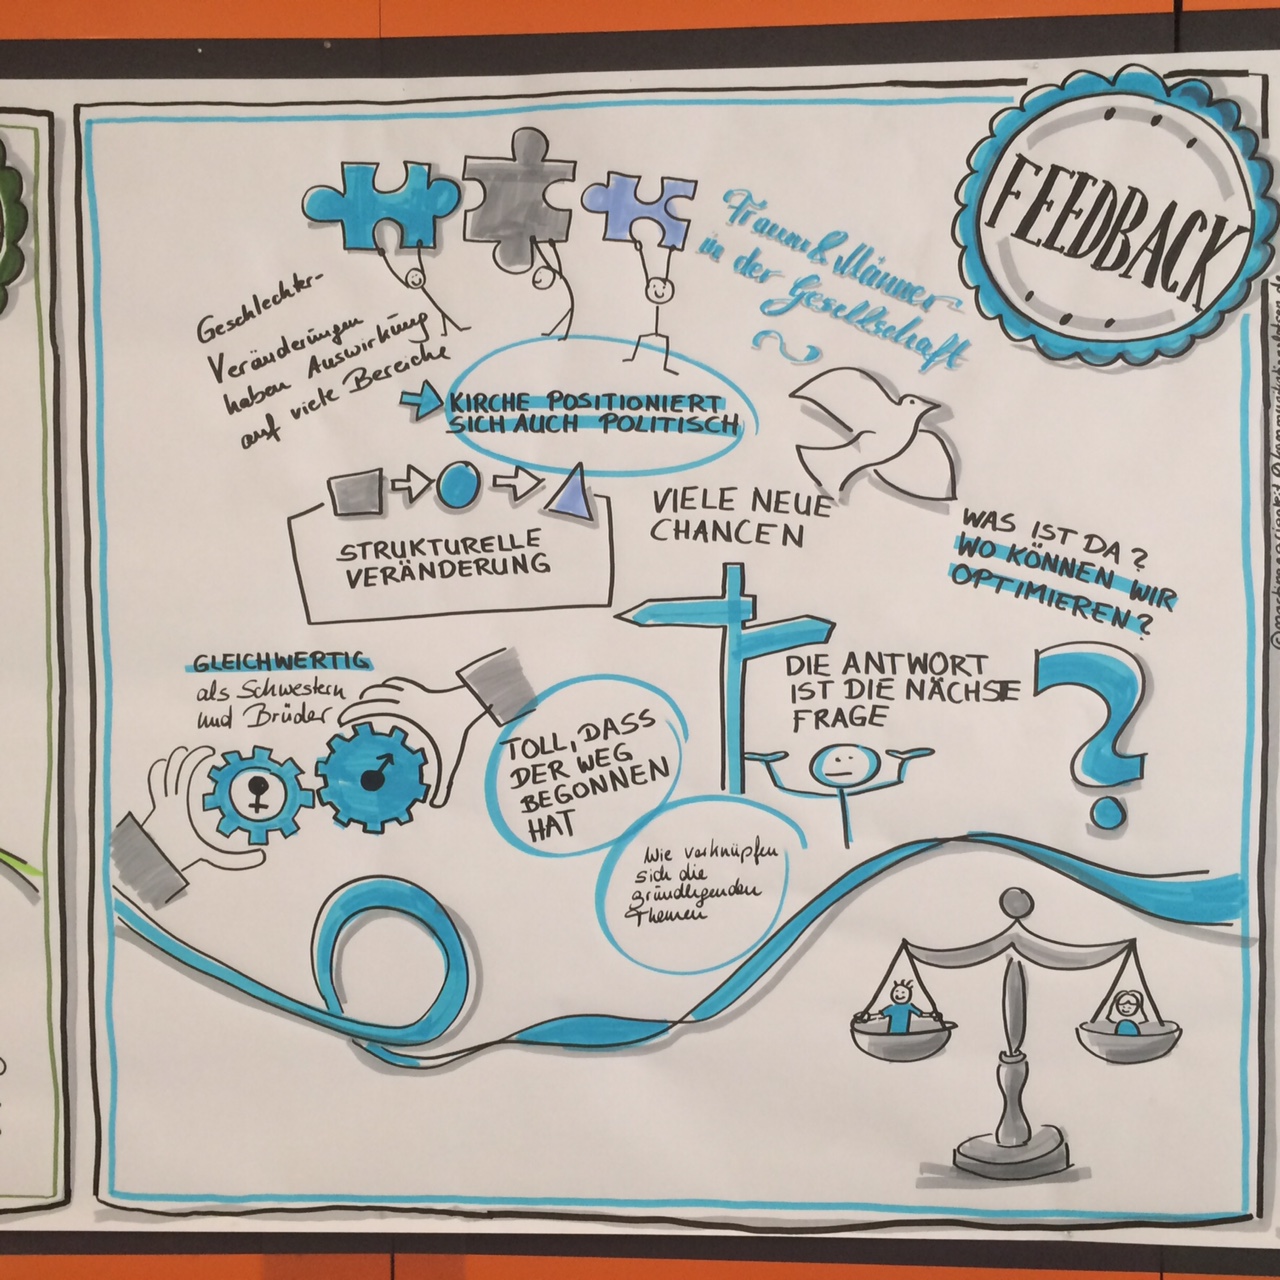 FEEDBACK
Frauen & Männer
in der
Gesellschaft
Geschlechter-
Veränderungen
haben Auswirkung
auf viele Bereiche
KIRCHE POSITIONIERT
SICH AUCH POLITISCH
STRUKTURELLE
VERÄNDERUNG
VIELE NEUE
CHANCEN
WAS IST DA?
WO KÖNNEN WIR
OPTIMIEREN?
GLEICHWERTIG
als Schwestern
und Brüder
TOLL, DASS
DER WEG
BEGONNEN
HAT
DIE ANTWORT
IST DIE NÄCHSTE
FRAGE
Wie verknüpfen
sich die
gründlegenden
Themen